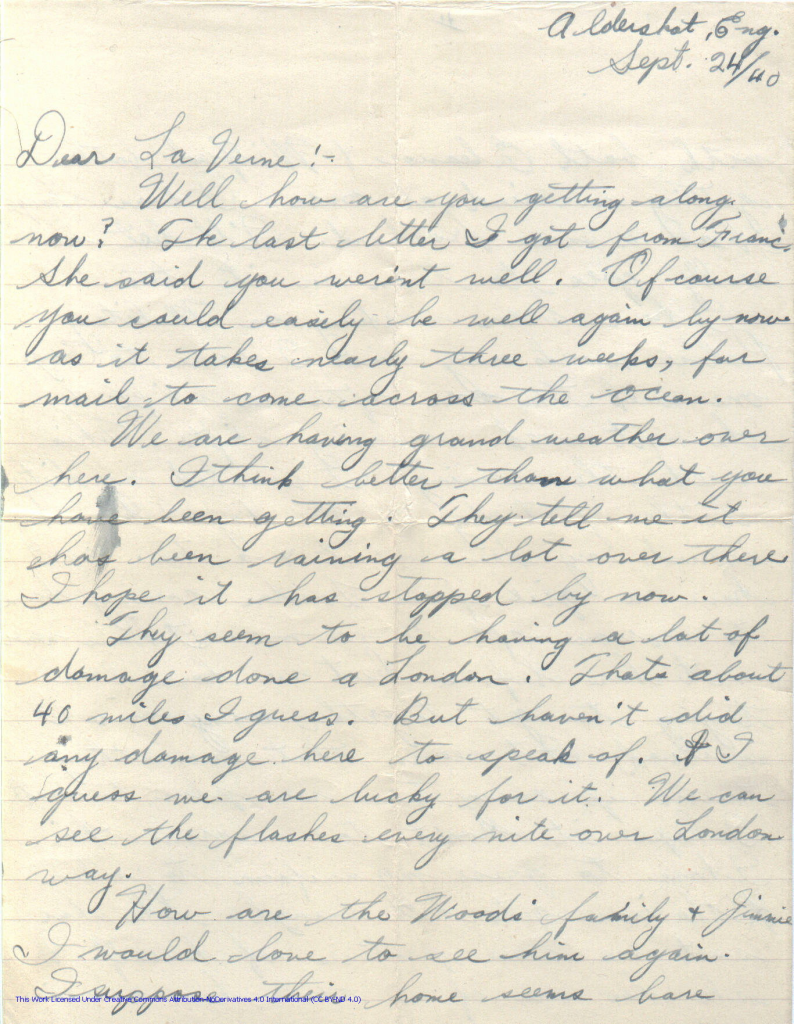 Aldershot, Eng.
Sept. 24/40
Dear La Verne!-
Well how are you getting along
now? The last letter I got from Franc.
She said you weren't well. Of course
you could easily be well again by now
as it takes nearly three weeks, for
mail to come across the ocean.
We are having grand weather over
here. I think better than what you
have been getting. They tell me it
has been raining a lot over there
I hope it has stopped by now.
They seem to be having a lot of
damage done a London. Thats about
40 miles I guess. But haven't did
any damage here to speak of. I
guess we are lucky for it. We can
see the flashes every nite over London
way.
How are the Woods' family + Jimmie
I would love to see him again.
I suppose their home seems bare
This Work Licensed Under Creative Commons Attribution-NoDerivatives 4.0 International (CC BY-ND 4.0)